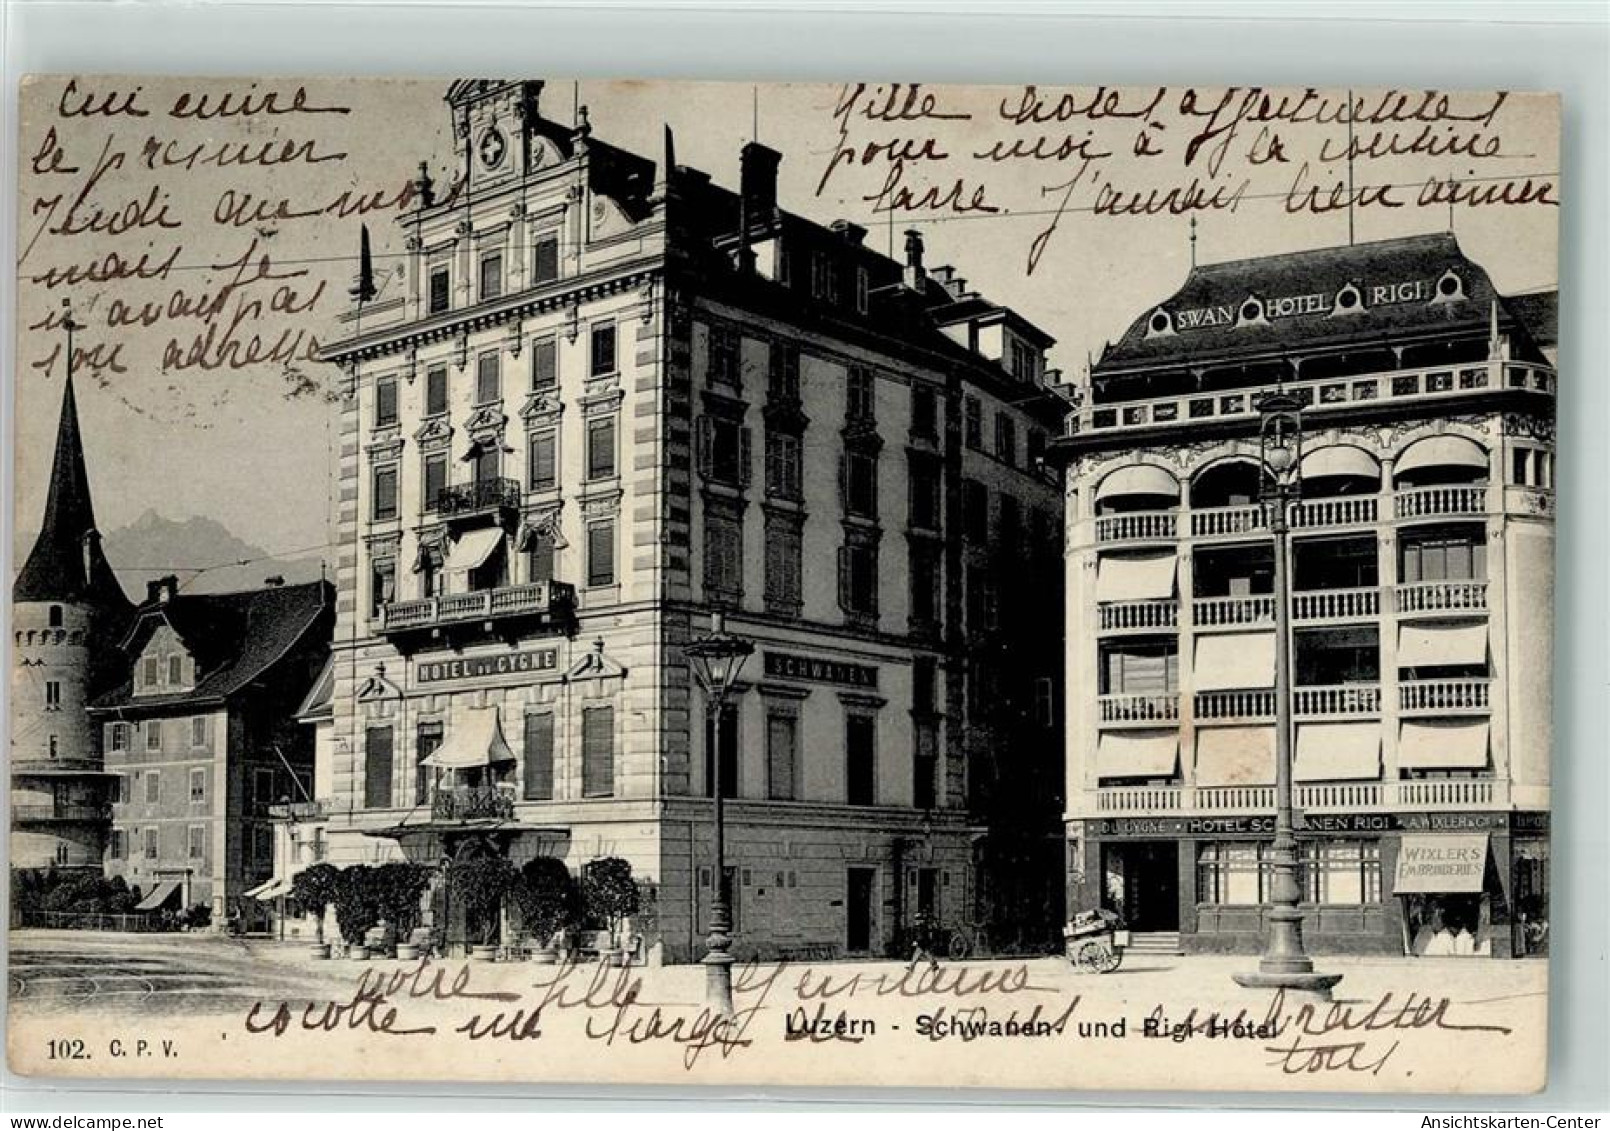 le premier
Jeudi du mois
mais je
n'avais pas
son adresse
Mille choses affectueuses
pour moi à la cousine
J'aurais bien aimer
SWAN HOTEL RIGI
HOTEL DU CYGNE
SCHWANEN
DU CYGNE * HOTEL SCHWANEN RIGI * A. WIXLER & Cº *
WIXLER'S
EMBROIDERIES
votre fille Germaine
cocotte me charge de vous embrasser
tous.
Luzern - Schwanen- und Rigi-Hôtel
102. C. P. V.
Ansichtskarten-Center